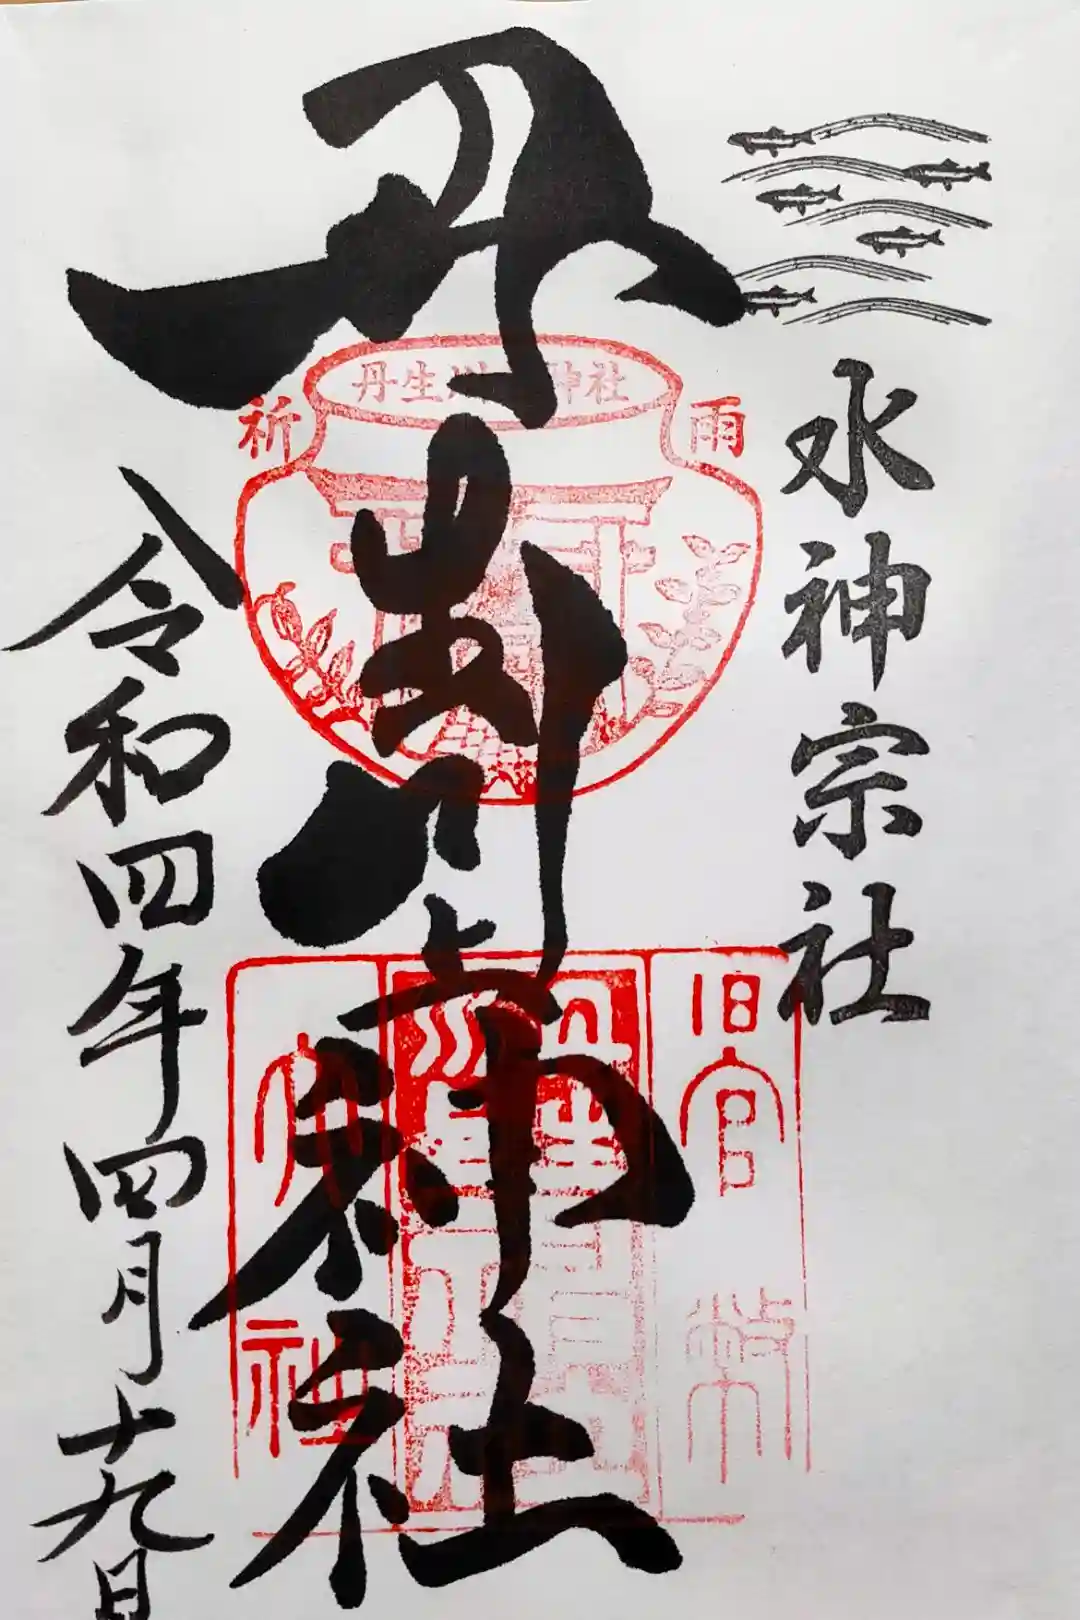 水神宗社
丹生川上神社
令和四年四月十九日
丹生川
神社
祈
雨
旧官幣
大
社